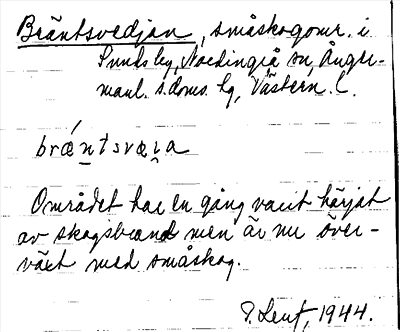 Bräntsvedjan, småskogomr. i
Sunds by, Nordingrå sn, Ånger-
manl. s. doms. hg, Västern. l.
brǽntsværa
Området har en gång varit härjat
av skogsbrand men är nu över-
växt med småskog.
1944.